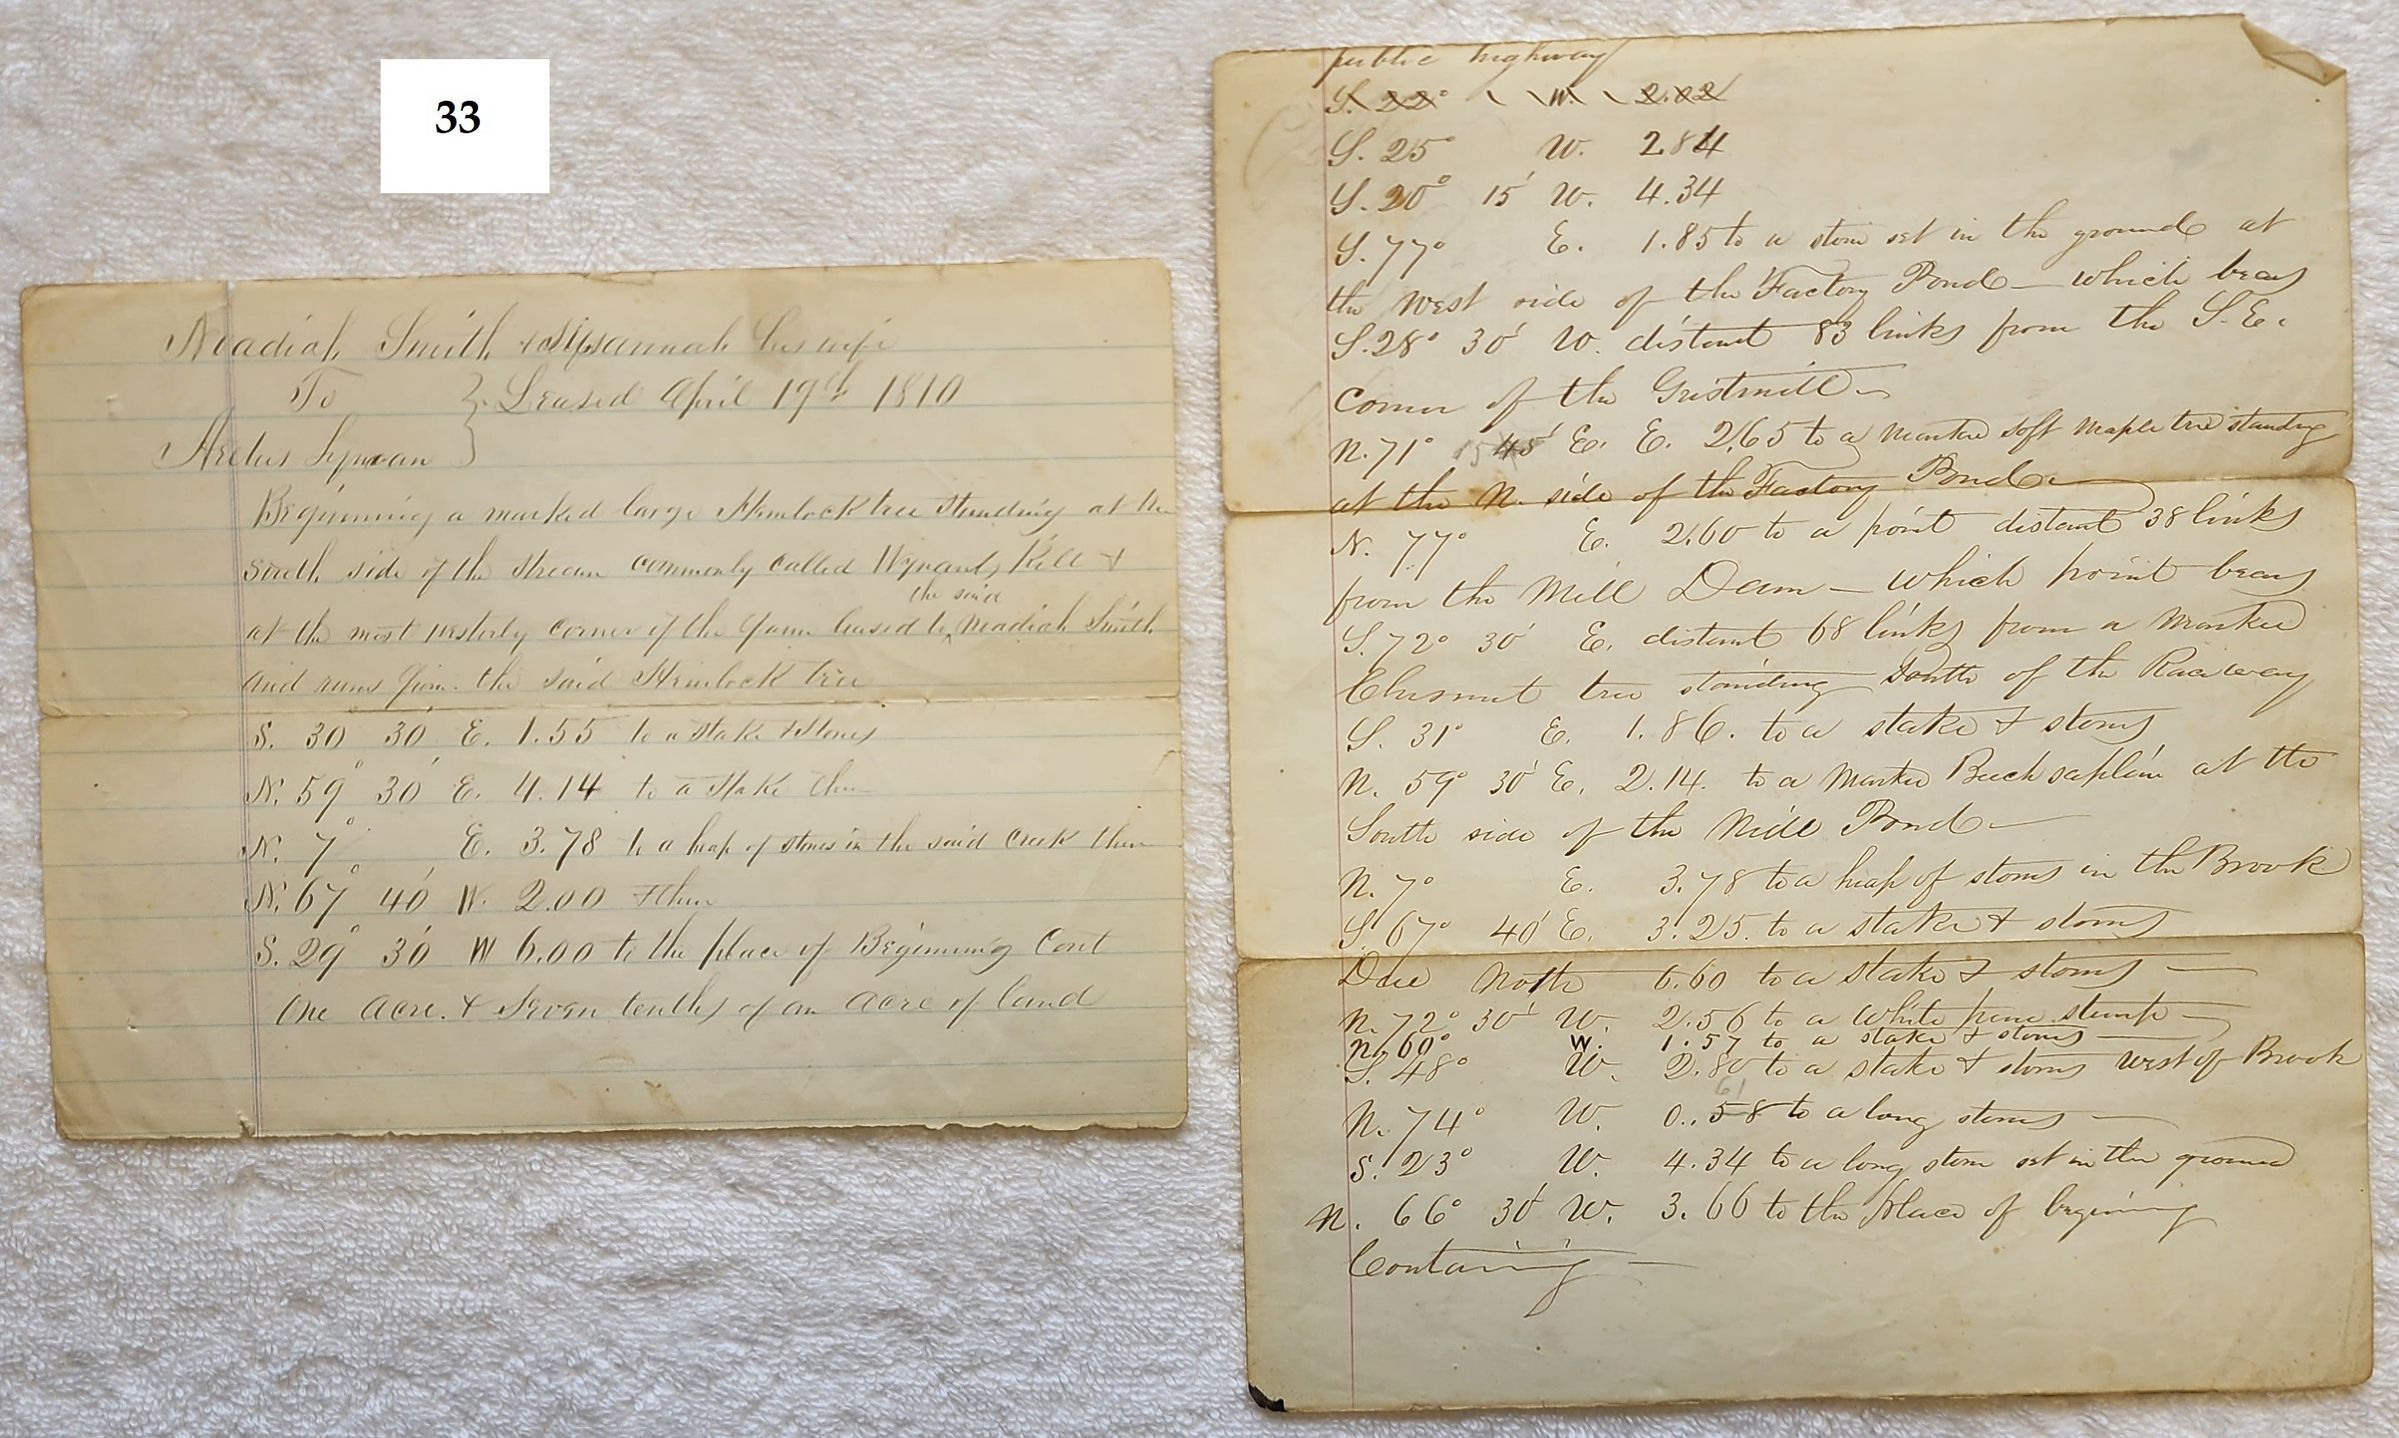 33
Noadiah Smith & Susannah his wife
To } Leased April 19th 1810
Aretus Lyman
Beginning a marked large Hemlock tree standing at the
South side of the stream commonly called Wynants Kill &
the said
at the most westerly corner of the farm leased to Noadiah Smith
and runs from the said Hemlock tree
S. 30 30' E. 1.55 to a stake & stones
N. 59° 30' E. 4.14 to a stake then
N. 7° E. 3.78 to a heap of stones in the said Creek then
N. 67° 40' W. 2.00 & then
S. 29° 30' W 6.00 to the place of Beginning Cont
One acre. & Seven tenths of an acre of land
public highway
S. 22° W. 2.02
S. 25° W. 2.84
S. 20° 15' W. 4.34
S. 77° E. 1.85 to a stone set in the ground at
the West side of the Factory Pond — which bears
S. 28° 30' W. distant 83 links from the S. E.
Corner of the Gristmill —
N. 71° 45' E. E. 2.65 to a marked soft maple tree standing
at the N. side of the Factory Pond —
N. 77° E. 2.60 to a point distant 38 links
from the Mill Dam — which point bears
S. 72° 30' E. distant 68 links from a marked
Chesnut tree standing South of the Raceway
S. 31° E. 1.86. to a stake & stones
N. 59° 30' E. 2.14. to a marked Beech saplin at the
South side of the Mill Pond —
N. 7° E. 3.78 to a heap of stones in the Brook
S. 67° 40' E. 3.25. to a stake & stones
Due North 6.60 to a stake & stones —
N. 72° 30' W. 2.56 to a white pine stump —
N. 60° W. 1.57 to a stake & stones —
S. 48° W. 2.80 to a stake & stones west of Brook
61
N. 74° W. 0..58 to a long stones —
S. 23° W. 4.34 to a long stone set in the ground
N. 66° 30' W. 3.66 to the place of begining
Containing —